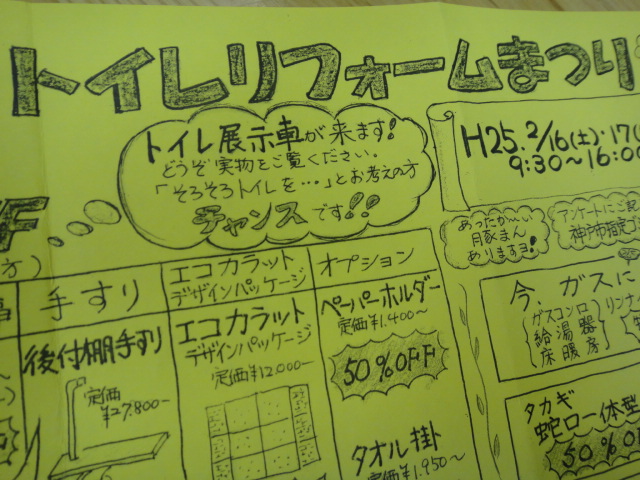 トイレリフォームまつり
トイレ展示車が来ます!
どうぞ実物をご覧ください。
「そろそろトイレを…」とお考えの方
チャンスです!!
H25.2/16(土)・17(
9:30～16:00
あったか～い
豚まん
ありますヨ!
アンケートにご記
方)
手すり
後付棚手すり
定価
¥27,800-
エコカラット
デザインパッケージ
エコカラット
デザインパッケージ
定価¥12,000-
オプション
ペーパーホルダー
定価¥1,400～
50%OFF
タオル掛
定価¥1,950～
今、ガスに
ガスコンロ
給湯器
床暖房
リンナ
タカギ
蛇口一体型
50%OFF